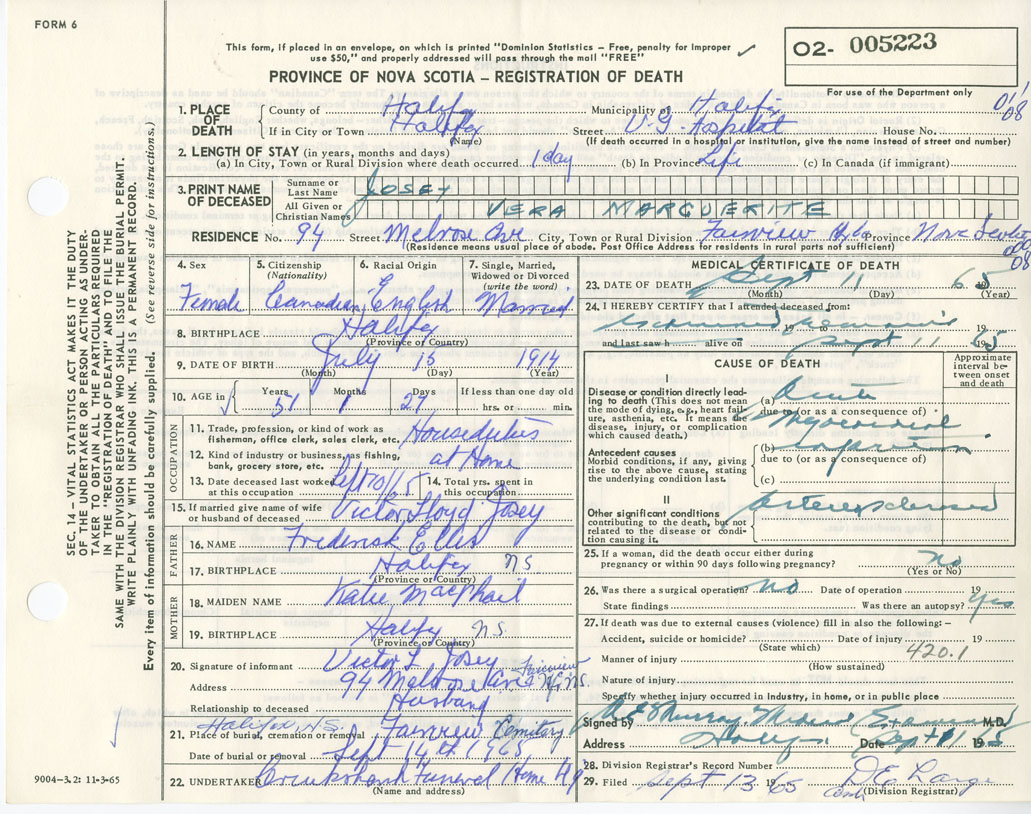 FORM 6
This form, if placed in an envelope, on which is printed "Dominion Statistics – Free, penalty for improper
use $50," and properly addressed will pass through the mail "FREE"
02- 005223
For use of the Department only
PROVINCE OF NOVA SCOTIA – REGISTRATION OF DEATH
1. PLACE OF DEATH
County of Halifax
Municipality of Halifax
If in City or Town Halifax
(Name)
Street V.G. Hospital House No.
(If death occurred in a hospital or institution, give the name instead of street and number)
2. LENGTH OF STAY (in years, months and days)
(a) In City, Town or Rural Division where death occurred 1 day (b) In Province Life (c) In Canada (if immigrant)
3. PRINT NAME OF DECEASED
Surname or Last Name JOSEY
All Given or Christian Names VERA MARGUERITE
RESIDENCE No. 94 Street Melrose Ave City, Town or Rural Division Fairview Hfx Province Nova Scotia
(Residence means usual place of abode. Post Office Address for residents in rural parts not sufficient)
4. Sex
Female
5. Citizenship
(Nationality)
Canadian
6. Racial Origin
English
7. Single, Married,
Widowed or Divorced
(write the word)
Married
8. BIRTHPLACE Halifax
(Province or Country)
9. DATE OF BIRTH July 15 1914
(Month) (Day) (Year)
10. AGE in
Years 51
Months 1
Days 27
If less than one day old
hrs. or min.
OCCUPATION
11. Trade, profession, or kind of work as
fisherman, office clerk, sales clerk, etc. Houseduties
12. Kind of industry or business, as fishing,
bank, grocery store, etc. at Home
13. Date deceased last worked
at this occupation Sept 10/65
14. Total yrs. spent in
this occupation
15. If married give name of wife
or husband of deceased Victor Lloyd Josey
FATHER
16. NAME Frederick Ellis
17. BIRTHPLACE Halifax N.S.
(Province or Country)
MOTHER
18. MAIDEN NAME Katie MacPhail
19. BIRTHPLACE Halifax N.S.
(Province or Country)
20. Signature of informant Victor L Josey
Address 94 Melrose Ave Fairview Hfx N.S.
Relationship to deceased Husband
Halifax, N.S.
21. Place of burial, cremation or removal Fairview Cemetery
Date of burial or removal Sept 14th 1965
22. UNDERTAKER Cruikshank Funeral Home Hfx
(Name and address)
MEDICAL CERTIFICATE OF DEATH
23. DATE OF DEATH Sept 11 65
(Month) (Day) (Year)
24. I HEREBY CERTIFY that I attended deceased from:
19 to 19
and last saw h alive on Sept 11 1965
CAUSE OF DEATH
Approximate
interval be-
tween onset
and death
I
Disease or condition directly lead-
ing to death (This does not mean
the mode of dying, e.g., heart fail-
ure, asthenia, etc. It means the
disease, injury, or complication
which caused death.)
(a) Acute
due to (or as a consequence of)
Myocardial
Antecedent causes
Morbid conditions, if any, giving
rise to the above cause, stating
the underlying condition last.
(b) infarction
due to (or as a consequence of)
(c)
II
Other significant conditions
contributing to the death, but not
related to the disease or condi-
tion causing it.
Arteriosclerosis
25. If a woman, did the death occur either during
pregnancy or within 90 days following pregnancy? No
(Yes or No)
26. Was there a surgical operation? No Date of operation 19
State findings Was there an autopsy? Yes
27. If death was due to external causes (violence) fill in also the following: –
Accident, suicide or homicide? Date of injury 19
(State which)
420.1
Manner of injury
(How sustained)
Nature of injury
Specify whether injury occurred in industry, in home, or in public place
Signed by Murray, Medical Examiner M.D.
Address Halifax Date Sept 11 1965
28. Division Registrar's Record Number
29. Filed Sept 13 1965
(Division Registrar)
SEC. 14 – VITAL STATISTICS ACT MAKES IT THE DUTY
OF THE UNDERTAKER OR PERSON ACTING AS UNDER-
TAKER TO OBTAIN ALL THE PARTICULARS REQUIRED
IN THE "REGISTRATION OF DEATH" AND TO FILE THE
SAME WITH THE DIVISION REGISTRAR WHO SHALL ISSUE THE BURIAL PERMIT.
WRITE PLAINLY WITH UNFADING INK. THIS IS A PERMANENT RECORD.
Every item of information should be carefully supplied. (See reverse side for instructions.)
9004-3.2: 11-3-65